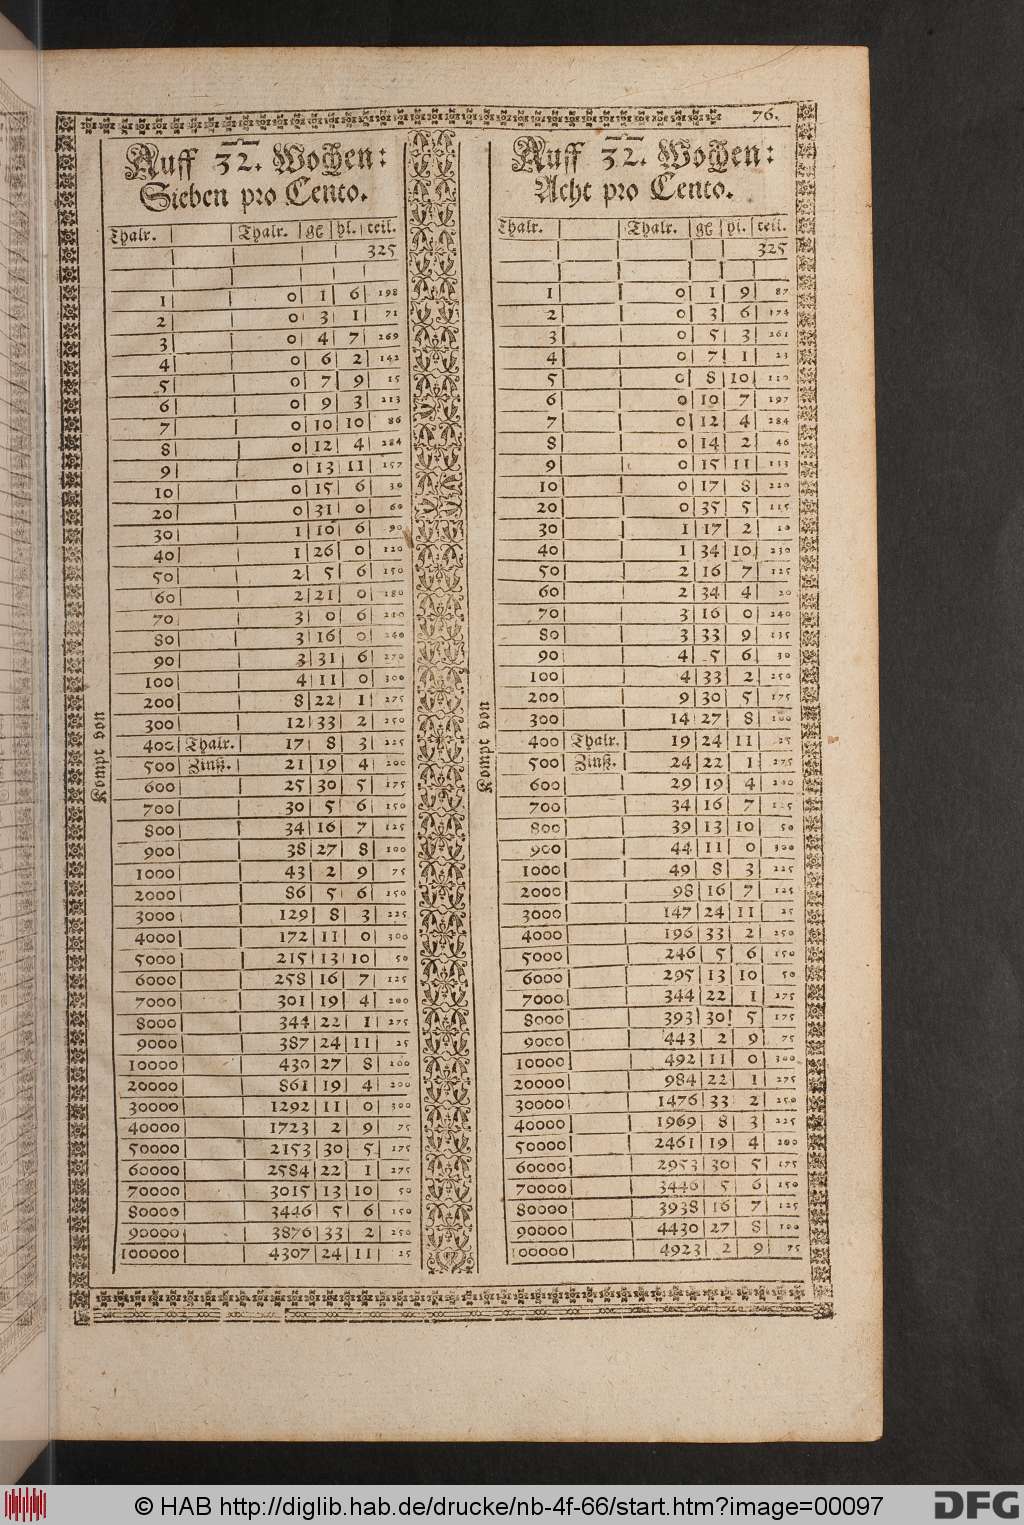 76.
Auff 32. Wochen:
Sieben pro Cento.
Thalr. | Thalr. | gl | pl. | teil.
325
1 | 0 | 1 | 6 | 198
2 | 0 | 3 | 1 | 71
3 | 0 | 4 | 7 | 269
4 | 0 | 6 | 2 | 142
5 | 0 | 7 | 9 | 15
6 | 0 | 9 | 3 | 213
7 | 0 | 10 | 10 | 86
8 | 0 | 12 | 4 | 284
9 | 0 | 13 | 11 | 157
10 | 0 | 15 | 6 | 30
20 | 0 | 31 | 0 | 60
30 | 1 | 10 | 6 | 90
40 | 1 | 26 | 0 | 120
50 | 2 | 5 | 6 | 150
60 | 2 | 21 | 0 | 180
70 | 3 | 0 | 6 | 210
80 | 3 | 16 | 0 | 240
90 | 3 | 31 | 6 | 270
100 | 4 | 11 | 0 | 300
200 | 8 | 22 | 1 | 275
300 | 12 | 33 | 2 | 250
400 | Thalr. | 17 | 8 | 3 | 225
500 | Zinß. | 21 | 19 | 4 | 200
600 | 25 | 30 | 5 | 175
700 | 30 | 5 | 6 | 150
800 | 34 | 16 | 7 | 125
900 | 38 | 27 | 8 | 100
1000 | 43 | 2 | 9 | 75
2000 | 86 | 5 | 6 | 150
3000 | 129 | 8 | 3 | 225
4000 | 172 | 11 | 0 | 300
5000 | 215 | 13 | 10 | 50
6000 | 258 | 16 | 7 | 125
7000 | 301 | 19 | 4 | 200
8000 | 344 | 22 | 1 | 275
9000 | 387 | 24 | 11 | 25
10000 | 430 | 27 | 8 | 100
20000 | 861 | 19 | 4 | 200
30000 | 1292 | 11 | 0 | 300
40000 | 1723 | 2 | 9 | 75
50000 | 2153 | 30 | 5 | 175
60000 | 2584 | 22 | 1 | 275
70000 | 3015 | 13 | 10 | 50
80000 | 3446 | 5 | 6 | 150
90000 | 3876 | 33 | 2 | 250
100000 | 4307 | 24 | 11 | 25
Kompt von
Auff 32. Wochen:
Acht pro Cento.
Thalr. | Thalr. | gl | pl. | teil.
325
1 | 0 | 1 | 9 | 87
2 | 0 | 3 | 6 | 174
3 | 0 | 5 | 3 | 261
4 | 0 | 7 | 1 | 23
5 | 0 | 8 | 10 | 110
6 | 0 | 10 | 7 | 197
7 | 0 | 12 | 4 | 284
8 | 0 | 14 | 2 | 46
9 | 0 | 15 | 11 | 133
10 | 0 | 17 | 8 | 220
20 | 0 | 35 | 5 | 115
30 | 1 | 17 | 2 | 10
40 | 1 | 34 | 10 | 230
50 | 2 | 16 | 7 | 125
60 | 2 | 34 | 4 | 20
70 | 3 | 16 | 0 | 240
80 | 3 | 33 | 9 | 135
90 | 4 | 5 | 6 | 30
100 | 4 | 33 | 2 | 250
200 | 9 | 30 | 5 | 175
300 | 14 | 27 | 8 | 100
400 | Thalr. | 19 | 24 | 11 | 25
500 | Zinß. | 24 | 22 | 1 | 275
600 | 29 | 19 | 4 | 200
700 | 34 | 16 | 7 | 125
800 | 39 | 13 | 10 | 50
900 | 44 | 11 | 0 | 300
1000 | 49 | 8 | 3 | 225
2000 | 98 | 16 | 7 | 125
3000 | 147 | 24 | 11 | 25
4000 | 196 | 33 | 2 | 250
5000 | 246 | 5 | 6 | 150
6000 | 295 | 13 | 10 | 50
7000 | 344 | 22 | 1 | 275
8000 | 393 | 30 | 5 | 175
9000 | 443 | 2 | 9 | 75
10000 | 492 | 11 | 0 | 300
20000 | 984 | 22 | 1 | 275
30000 | 1476 | 33 | 2 | 250
40000 | 1969 | 8 | 3 | 225
50000 | 2461 | 19 | 4 | 200
60000 | 2953 | 30 | 5 | 175
70000 | 3446 | 5 | 6 | 150
80000 | 3938 | 16 | 7 | 125
90000 | 4430 | 27 | 8 | 100
100000 | 4923 | 2 | 9 | 75
Kompt von
© HAB http://diglib.hab.de/drucke/nb-4f-66/start.htm?image=00097
DFG